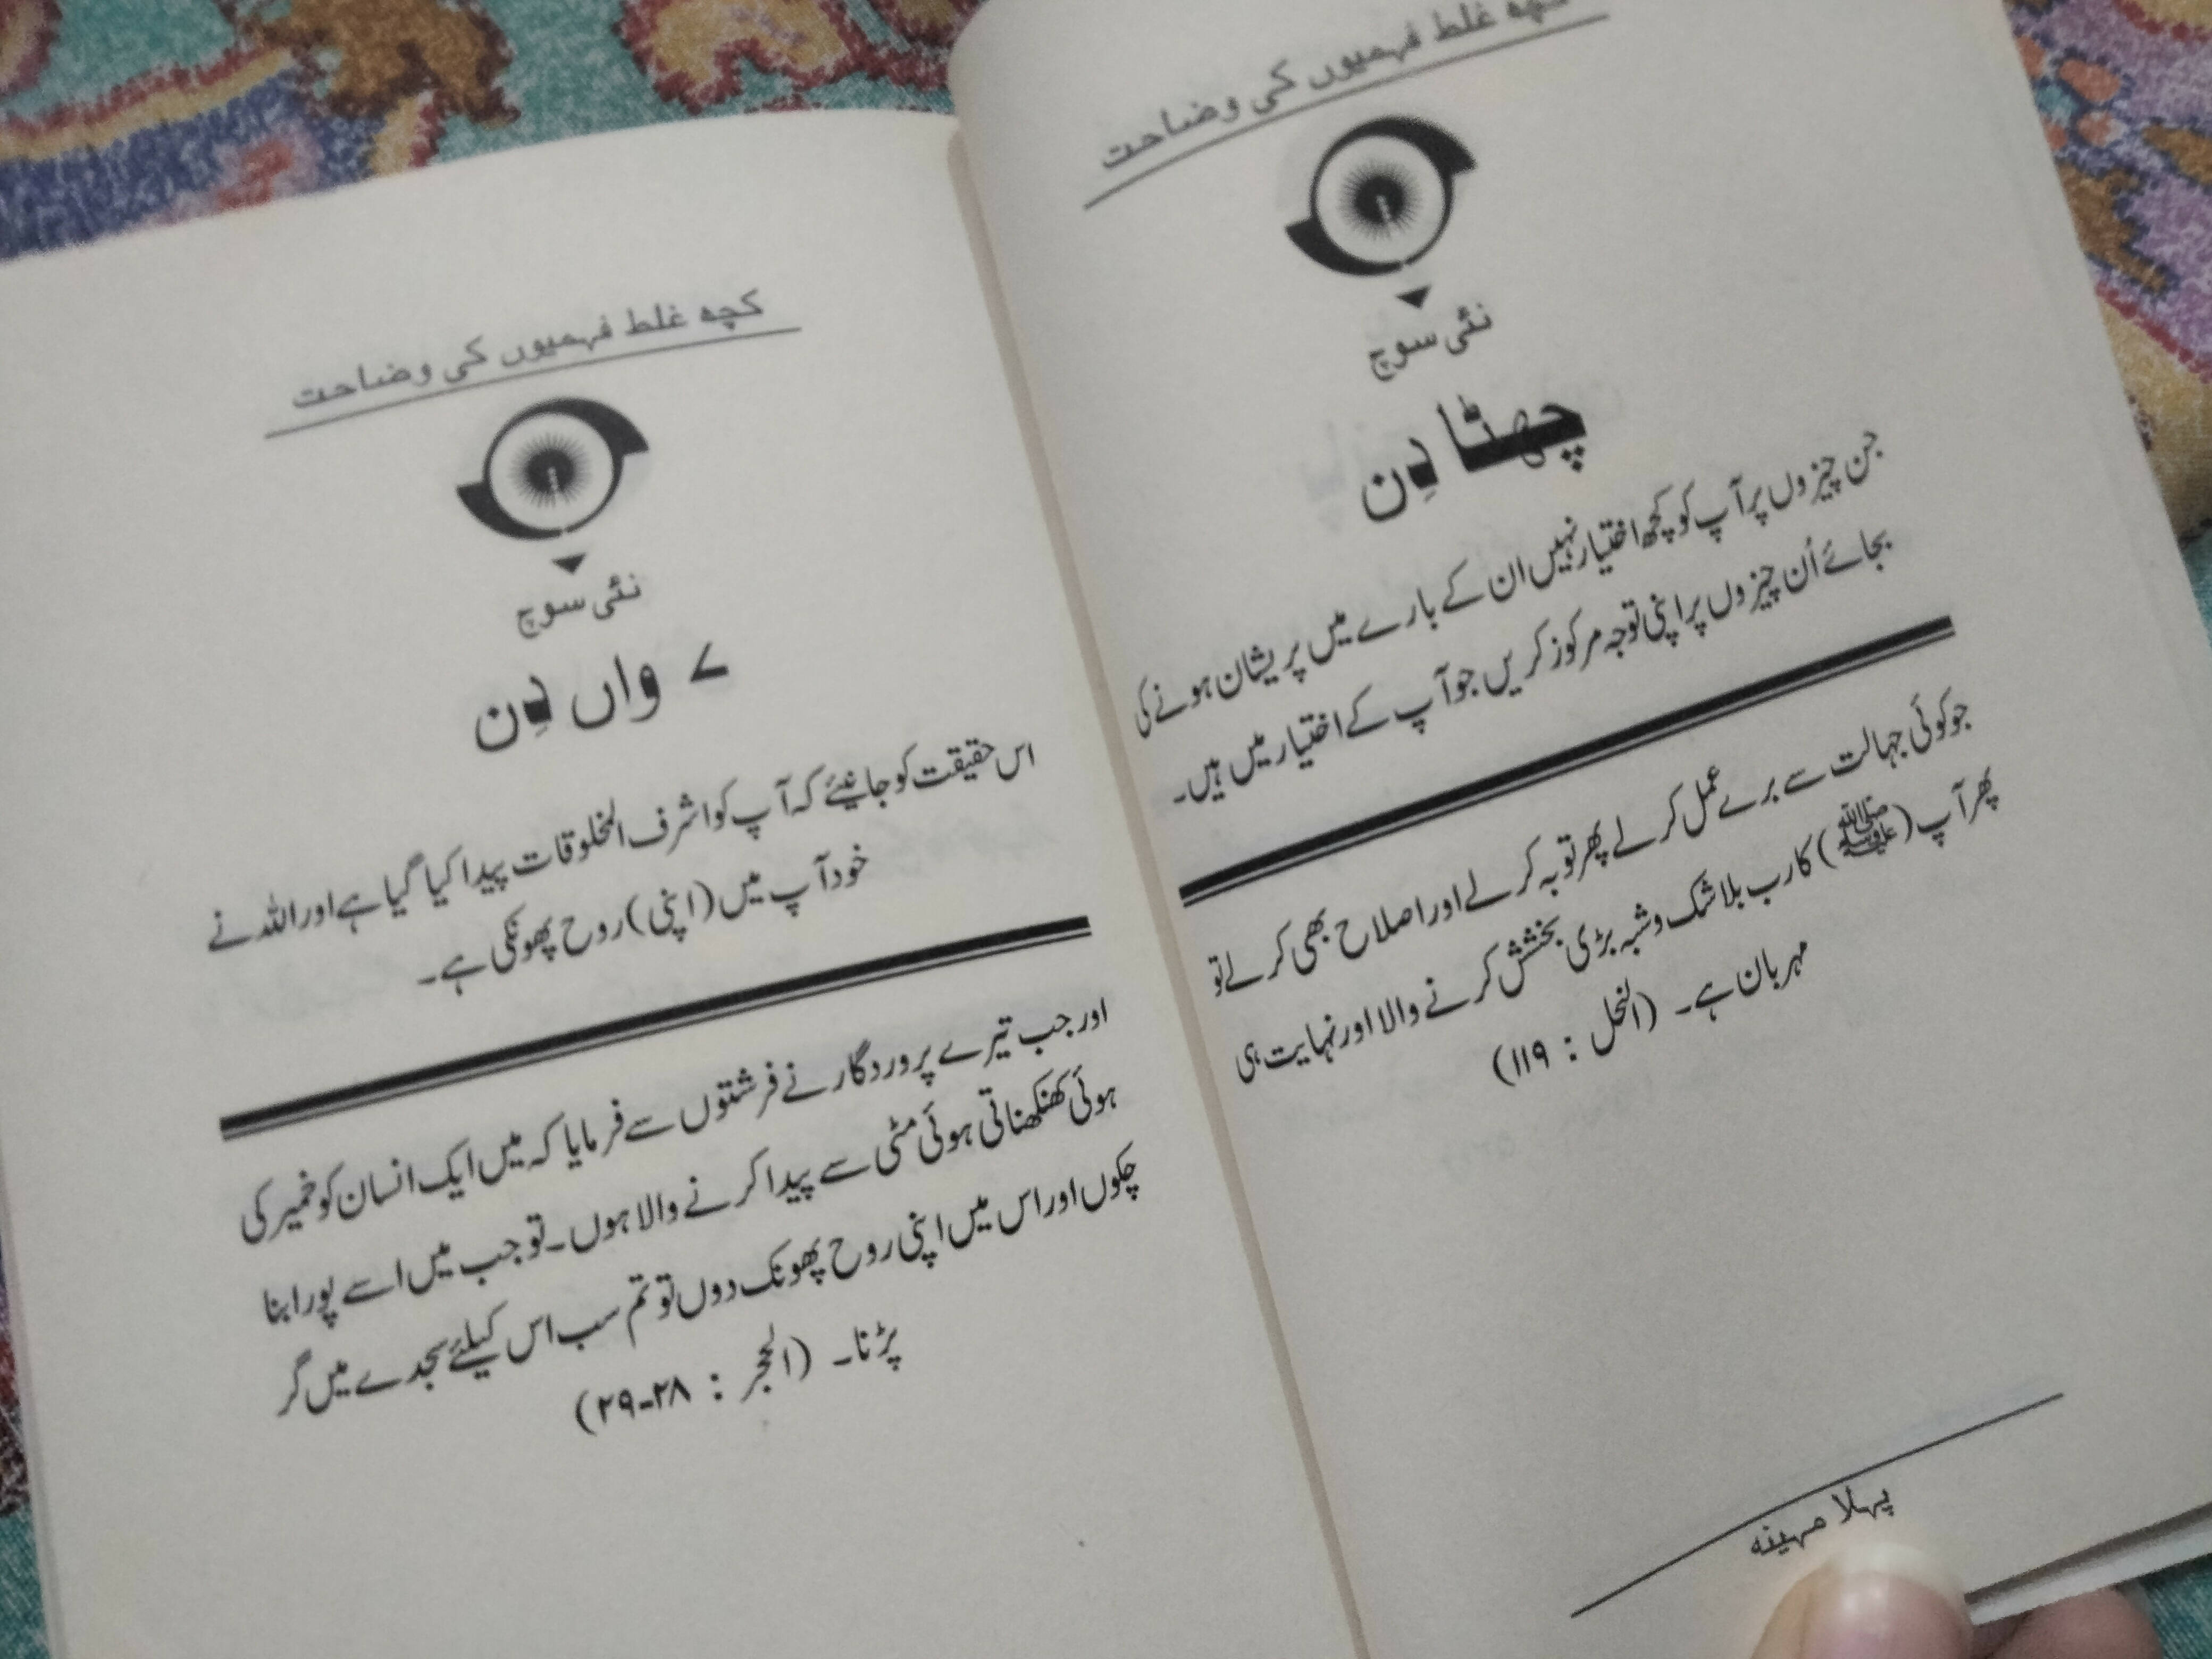 کچھ غلط فہمیوں کی وضاحت
نئی سوچ
چھٹا دِن
جن چیزوں پر آپ کو کچھ اختیار نہیں ان کے بارے میں پریشان ہونے کی
بجائے اُن چیزوں پر اپنی توجہ مرکوز کریں جو آپ کے اختیار میں ہیں۔
جو کوئی جہالت سے برے عمل کرلے پھر توبہ کرلے اور اصلاح بھی کرلے تو
پھر آپ (ﷺ) کا رب بلاشک و شبہ بڑی بخشش کرنے والا اور نہایت ہی
مہربان ہے۔ (النحل : ۱۱۹)
پہلا مہینہ
کچھ غلط فہمیوں کی وضاحت
نئی سوچ
۷ واں دِن
اس حقیقت کو جانیئے کہ آپ کو اشرف المخلوقات پیدا کیا گیا ہے اور اللہ نے
خود آپ میں (اپنی) روح پھونکی ہے۔
اور جب تیرے پروردگار نے فرشتوں سے فرمایا کہ میں ایک انسان کو خمیر کی
ہوئی کھنکھناتی ہوئی مٹی سے پیدا کرنے والا ہوں۔ تو جب میں اسے پورا بنا
چکوں اور اس میں اپنی روح پھونک دوں تو تم سب اس کیلئے سجدے میں گر
پڑنا۔ (الحجر : ۲۸-۲۹)